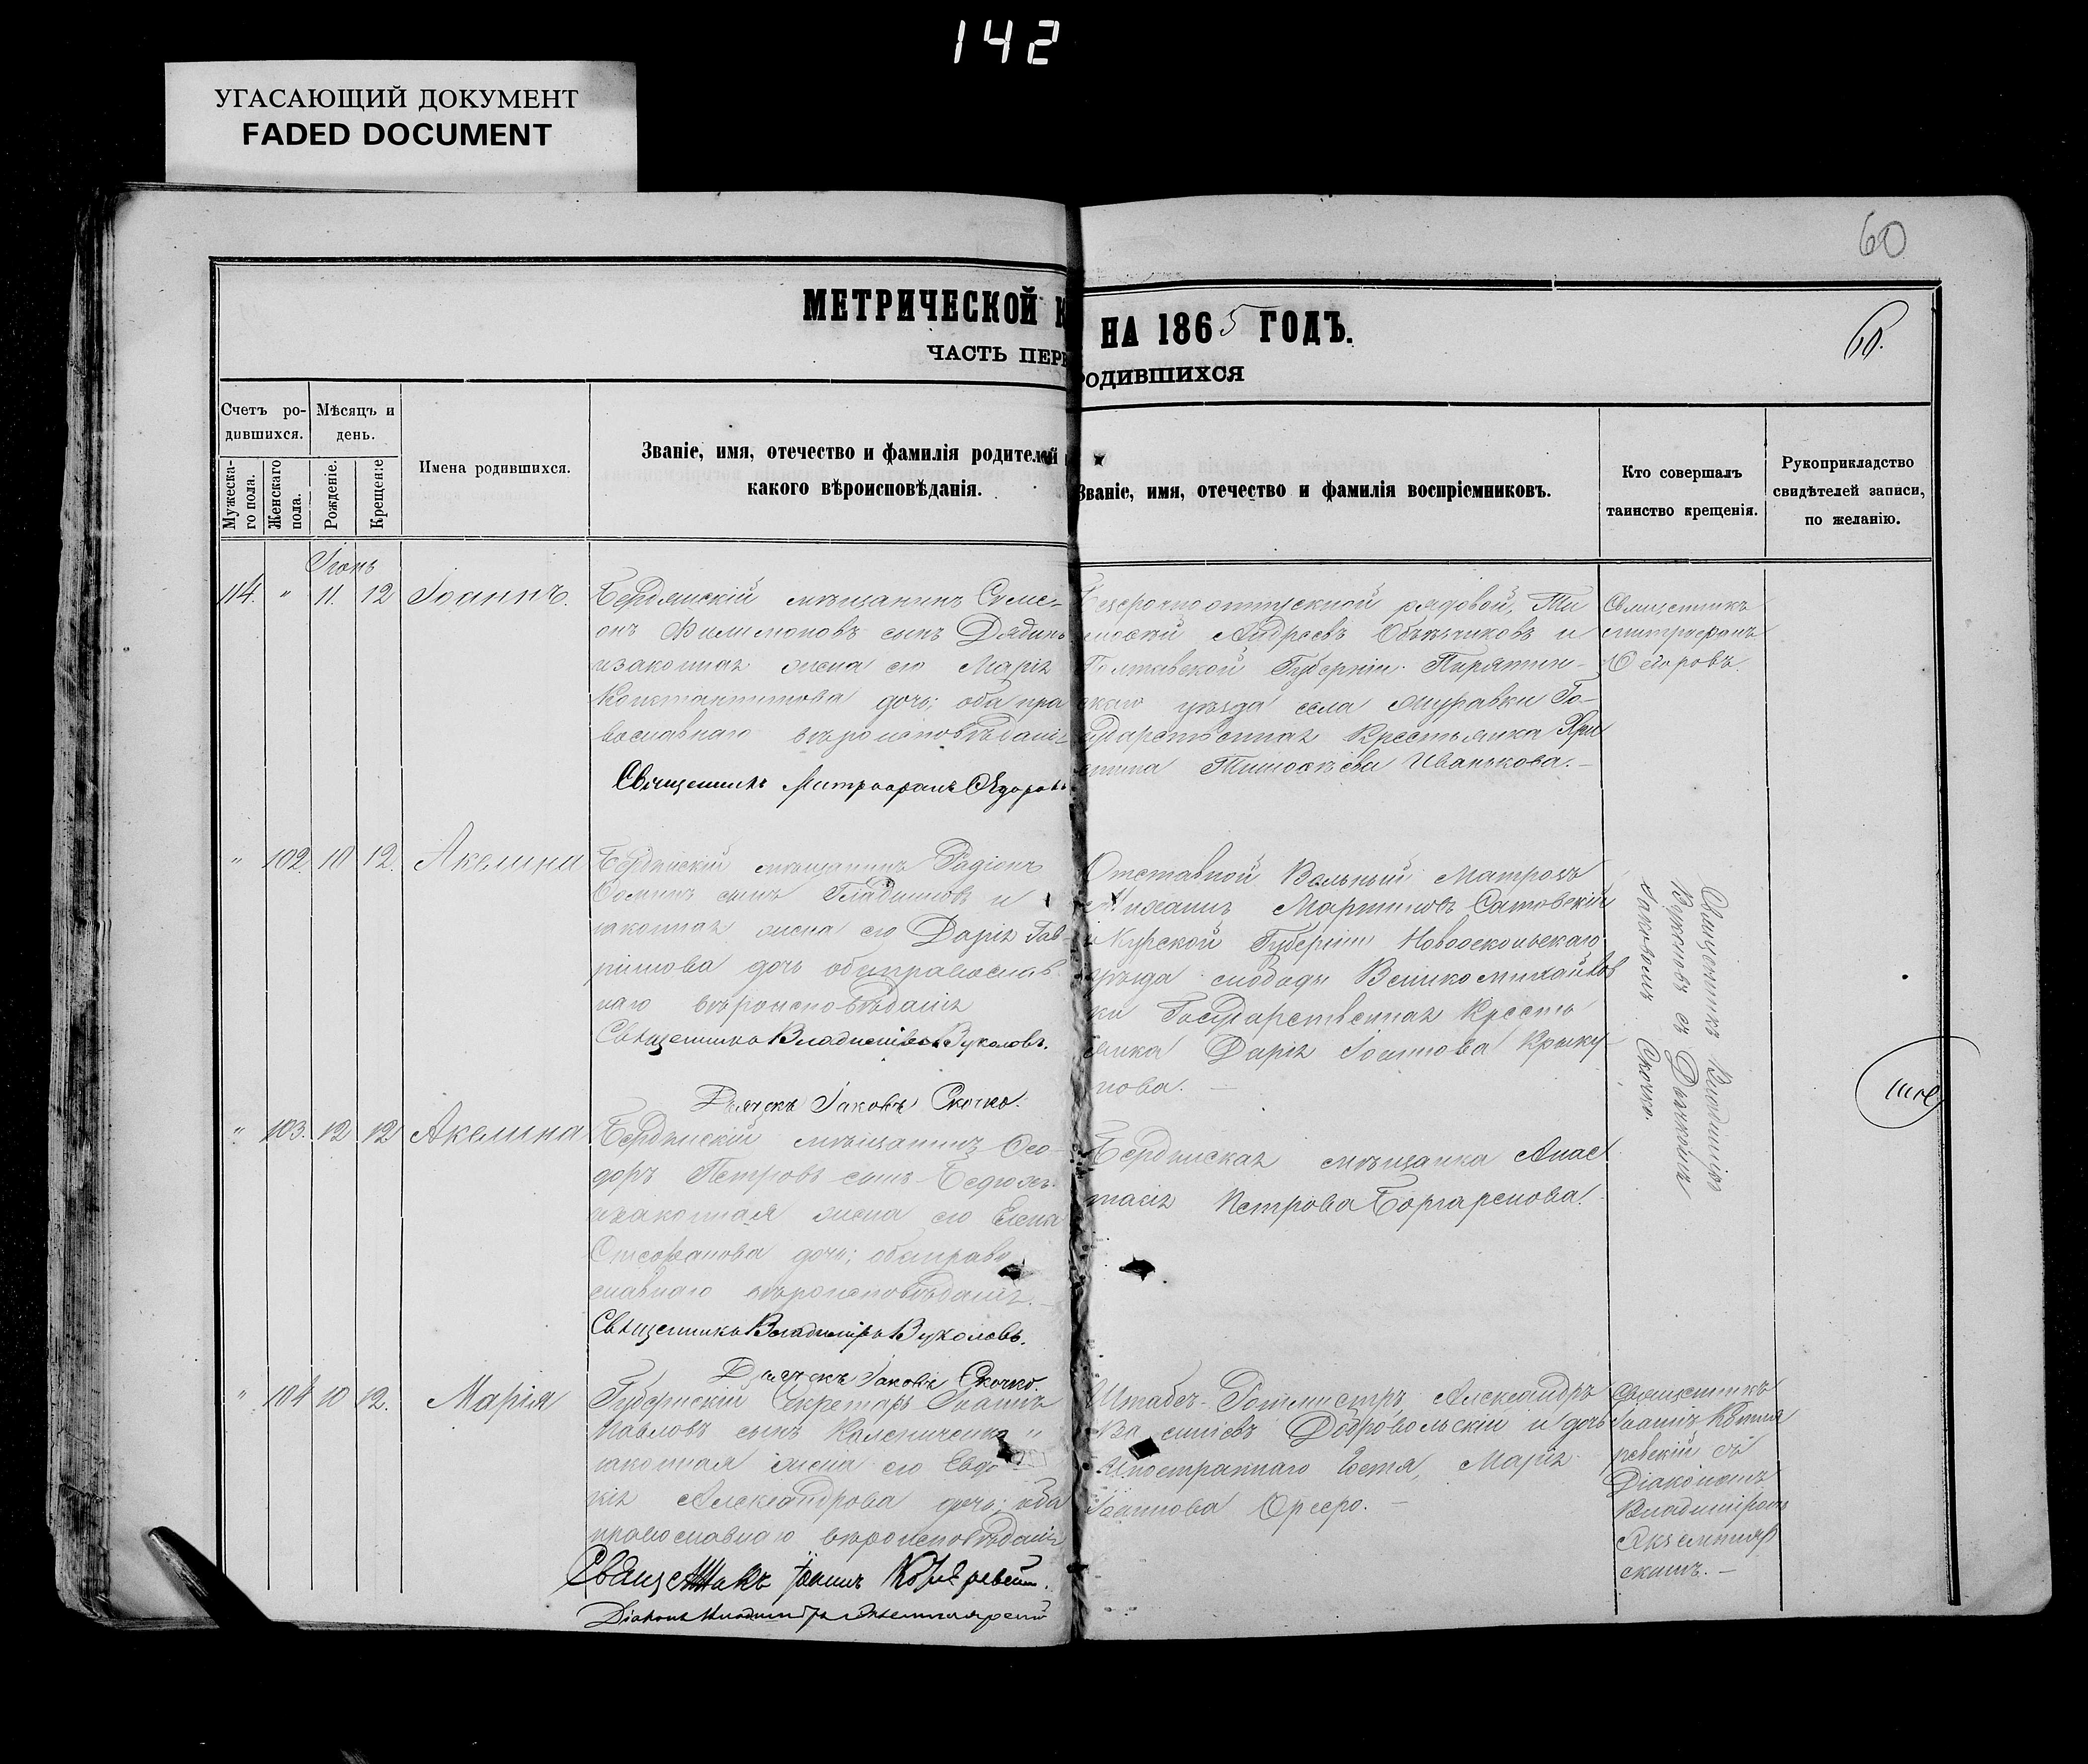 142
УГАСАЮЩИЙ ДОКУМЕНТ
FADED DOCUMENT
60
МЕТРИЧЕСКОЙ К НА 1865 ГОДЪ.
60.
ЧАСТЬ ПЕРВ РОДИВШИХСЯ
Счетъ ро-
дившихся.
Мѣсяцъ и
день.
Мужеска-
го пола.
Женскаго
пола.
Рожденіе.
Крещеніе
Имена родившихся.
Званіе, имя, отечество и фамилія родителей
какого вѣроисповѣданія.
Званіе, имя, отечество и фамилія воспріемниковъ.
Кто совершалъ
таинство крещенія.
Рукоприкладство
свидѣтелей записи,
по желанію.
Іюнь
114. " 11. 12 Іоаннъ.
Бердянскій мѣщанинъ Симе-
онъ Филимоновъ сынъ Дядинъ
изаконная жена его Марія
Константинова дочь; оба пра
вославнаго вѣроисповѣданія
Священникъ Митрофанъ Ѳедоровъ
Безсрочноотпускной рядовой, Ти
моѳей Андреевъ и
Полтавской Губерніи Пирятин-
скаго уѣзда села Журавки Го-
сударственная Крестьянка Хри
стина Тимоѳеева Иванькова.
Священникъ
Митрофанъ
Ѳедоровъ.
" 102. 10 12. Акелина
Бердянскій мѣщанинъ Радіонъ
Ѳоминъ сынъ Гладишовъ и
законная жена его Дарія Гав-
рилова дочь обаправослав
наго вѣроисповѣданія
Священникъ Владиміръ Вуколовъ.
Дьячекъ Іаковъ Скочко.
Отставной Вольный Матрозъ
Михаилъ Мартиновъ Сатовскій
и Курской Губерніи Новооскольскаго
уѣзда слободы Великомихайлов
ки Государственная Кресть
янка Дарія Іоаннова Крыку-
нова.
Священникъ Владиміръ
Вуколовъ съ Дьячкомъ
Іаковомъ Скочко.
" 103. 12 12 Акелина
Бердянскій мѣщанинъ Ѳео-
доръ Петровъ сынъ
изаконная жена его Елена
Стефанова дочь; обаправо
славнаго вѣроисповѣданія.
Священникъ Владиміръ Вуколовъ.
Дьячекъ Іаковъ Скочко.
Бердянская мѣщанка Анас
тасія Петрова
" 104 10 12. Марія
Губернскій Секретарь Іоаннъ
Павловъ сынъ Калениченко и
законная жена его Евдо
кія Александрова дочь; оба
православнаго вѣроисповѣданія
Священникъ Іоаннъ
Діаконъ Владиміръ Экземплярскій
Штабсъ-Ротмистръ Александръ
Васильевъ Добровольскій и дочь
Иностраннаго Гостя, Марія
Іоаннова
Священникъ
Іоаннъ
ревскій съ
Діакономъ
Владиміромъ
Экземпляр
скимъ.